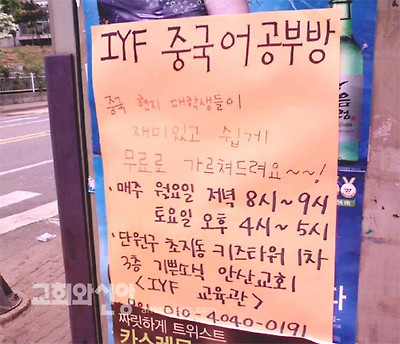 IYF 중국어공부방
중국 현지 대학생들이
재미있고 쉽게
무료로 가르쳐드려요~~!
· 매주 월요일 저녁 8시~9시
토요일 오후 4시~5시
· 단원구 초지동 키즈타워 1차
3층 기쁜소식 안산교회
<IYF 교육관>
010-4040-0191
교회와신앙
짜릿하게 트위스트